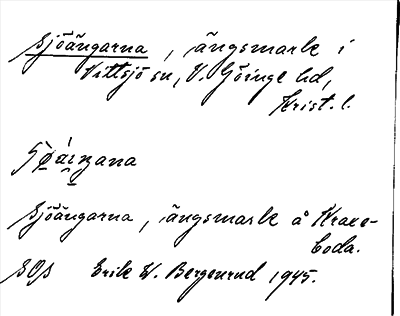 Sjöängarna, ängsmark i
Vittsjö sn, V. Göinge hd,
Krist. l.
Sjöängarna, ängsmark å Kraxe-
boda.
SOS Erik W. Bergenrud 1945.